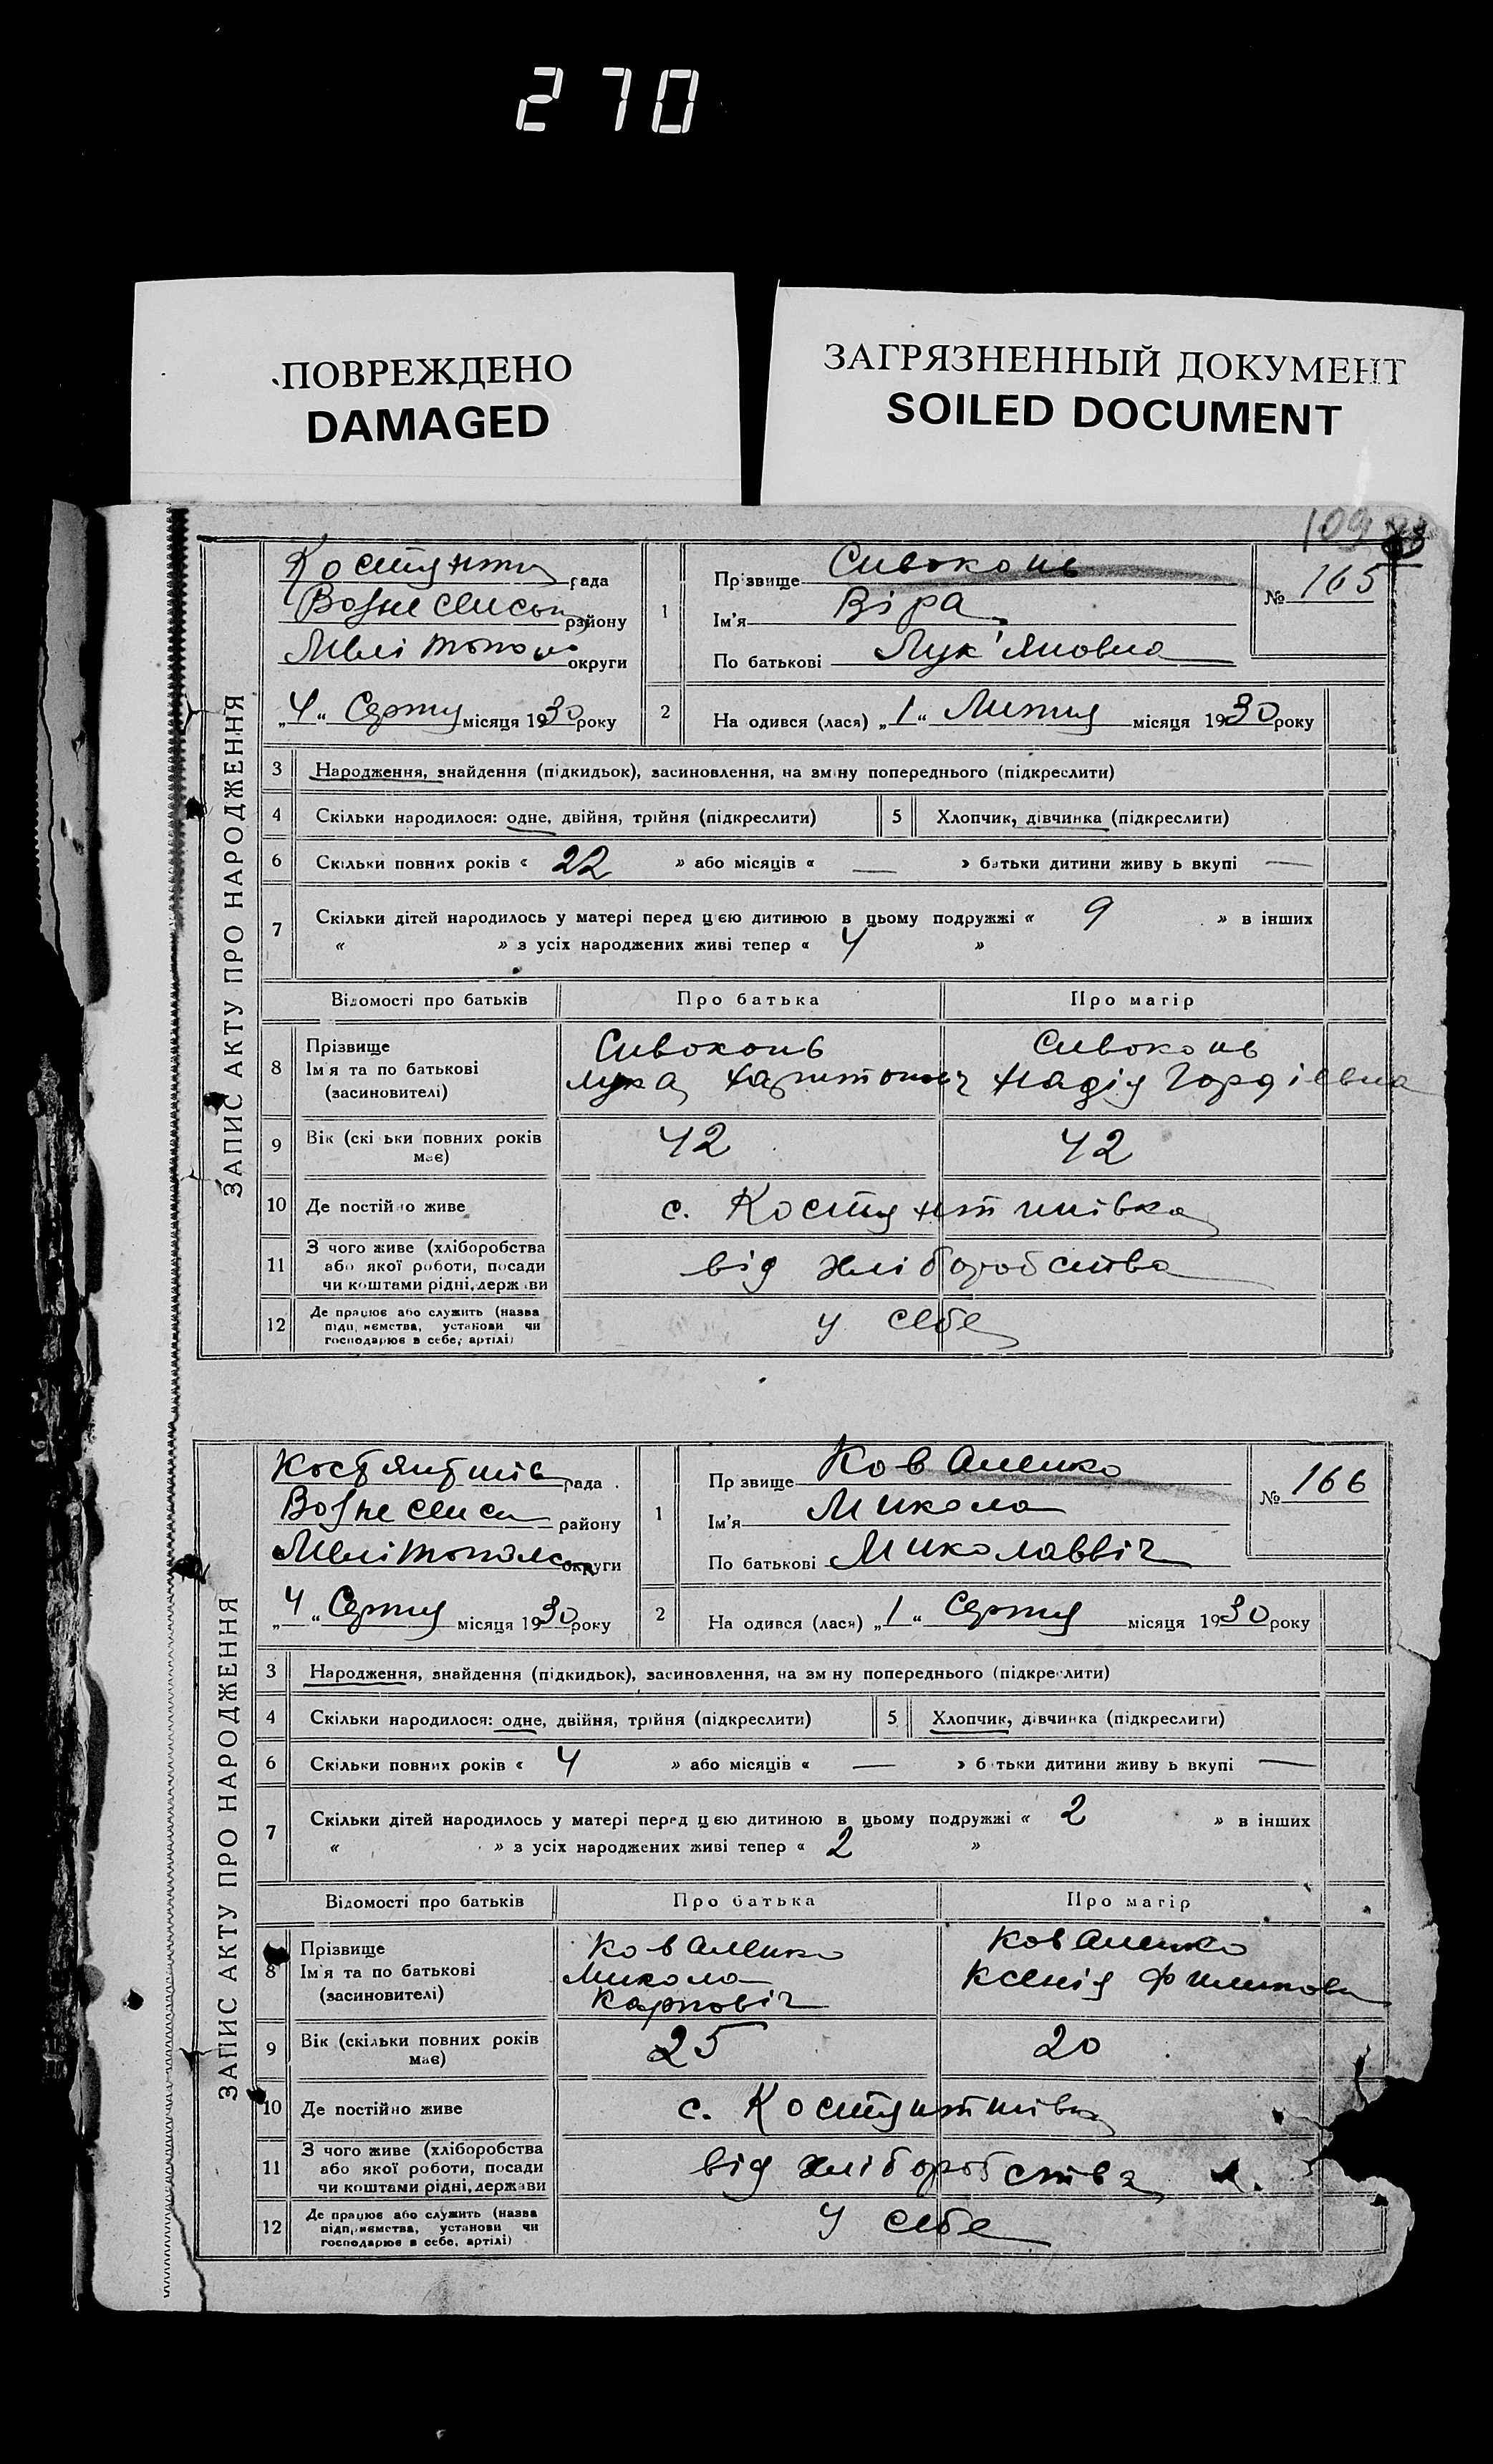 270
ПОВРЕЖДЕНО
DAMAGED
ЗАГРЯЗНЕННЫЙ ДОКУМЕНТ
SOILED DOCUMENT
109
ЗАПИС АКТУ ПРО НАРОДЖЕННЯ
Костянти рада
Вознесенськ району
Мелітополь округи
„4“ Серпня місяця 1930 року
1 Прізвище Сивоконь
Ім'я Віра
По батькові Лук'яновна
№ 165
2 На одився (лася) „1“ Липня місяця 1930 року
3 Народження, знайдення (підкидьок), засиновлення, на зміну попереднього (підкреслити)
4 Скільки народилося: одне, двійня, трійня (підкреслити) 5 Хлопчик, дівчинка (підкреслити)
6 Скільки повних років « 22 » або місяців « — » батьки дитини живу ь вкупі —
7 Скільки дітей народилось у матері перед цією дитиною в цьому подружжі « 9 » в інших
« » з усіх народжених живі тепер « 4 »
Відомості про батьків Про батька Про матір
8 Прізвище Сивоконь Сивоконь
Ім'я та по батькові Лука Харитонович Надія Гордіївна
(засиновителі)
9 Вік (скі ьки повних років 42 42
має)
10 Де постійно живе с. Костянтинівка
11 З чого живе (хліборобства
або якої роботи, посади від хліборобства
чи коштами рідні, держави
12 Де працює або служить (назва
підприємства, установи чи у себе
господарює в себе, артілі)
ЗАПИС АКТУ ПРО НАРОДЖЕННЯ
Костянтинів рада
Вознесенсь району
Мелітопольс округи
„4“ Серпня місяця 1930 року
1 Пр звище Коваленко
Ім'я Микола
По батькові Миколаввіч
№ 166
2 На одився (лася) „1“ Серпня місяця 1930 року
3 Народження, знайдення (підкидьок), засиновлення, на зм ну попереднього (підкреслити)
4 Скільки народилося: одне, двійня, трійня (підкреслити) 5 Хлопчик, дівчинка (підкреслити)
6 Скільки повних років « 4 » або місяців « — » б тьки дитини живу ь вкупі —
7 Скільки дітей народилось у матері перед цією дитиною в цьому подружжі « 2 » в інших
« » з усіх народжених живі тепер « 2 »
Відомості про батьків Про батька Про матір
8 Прізвище Коваленко Коваленко
Ім'я та по батькові Микола Ксенія
(засиновителі) Карповіч
9 Вік (скільки повних років 25 20
має)
10 Де постійно живе с. Костянтинівка
11 З чого живе (хліборобства
або якої роботи, посади від хліборобства
чи коштами рідні, держави
12 Де працює або служить (назва
підприємства, установи чи у себе
господарює в себе, артілі)